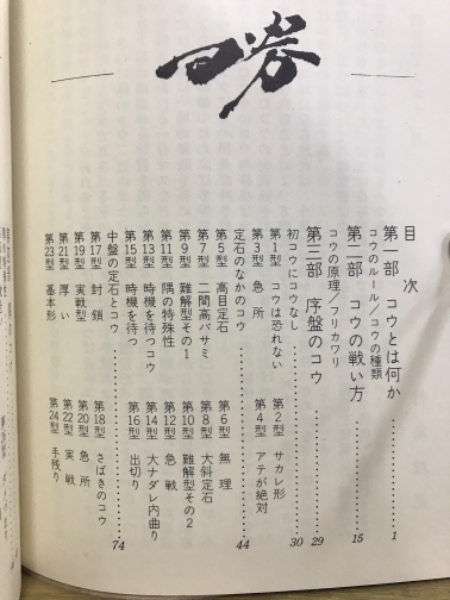 目次
第一部 コウとは何か………1
コウのルール／コウの種類
第二部 コウの戦い方………15
コウの原理／フリカワリ
第三部 序盤のコウ………29
初コウにコウなし………30
第1型 コウは恐れない 第2型 サカレ形
第3型 急所 第4型 アテが絶対
定石のなかのコウ………44
第5型 高目定石 第6型 無理
第7型 二間高バサミ 第8型 大斜定石
第9型 難解型その1 第10型 難解型その2
第11型 隅の特殊性 第12型 急戦
第13型 時機を待つコウ 第14型 大ナダレ内曲り
第15型 時機を待つ 第16型 出切り
中盤の定石とコウ………74
第17型 封鎖 第18型 さばきのコウ
第19型 実戦型 第20型 急所
第21型 厚い 第22型 実戦
第23型 基本形 第24型 手残り